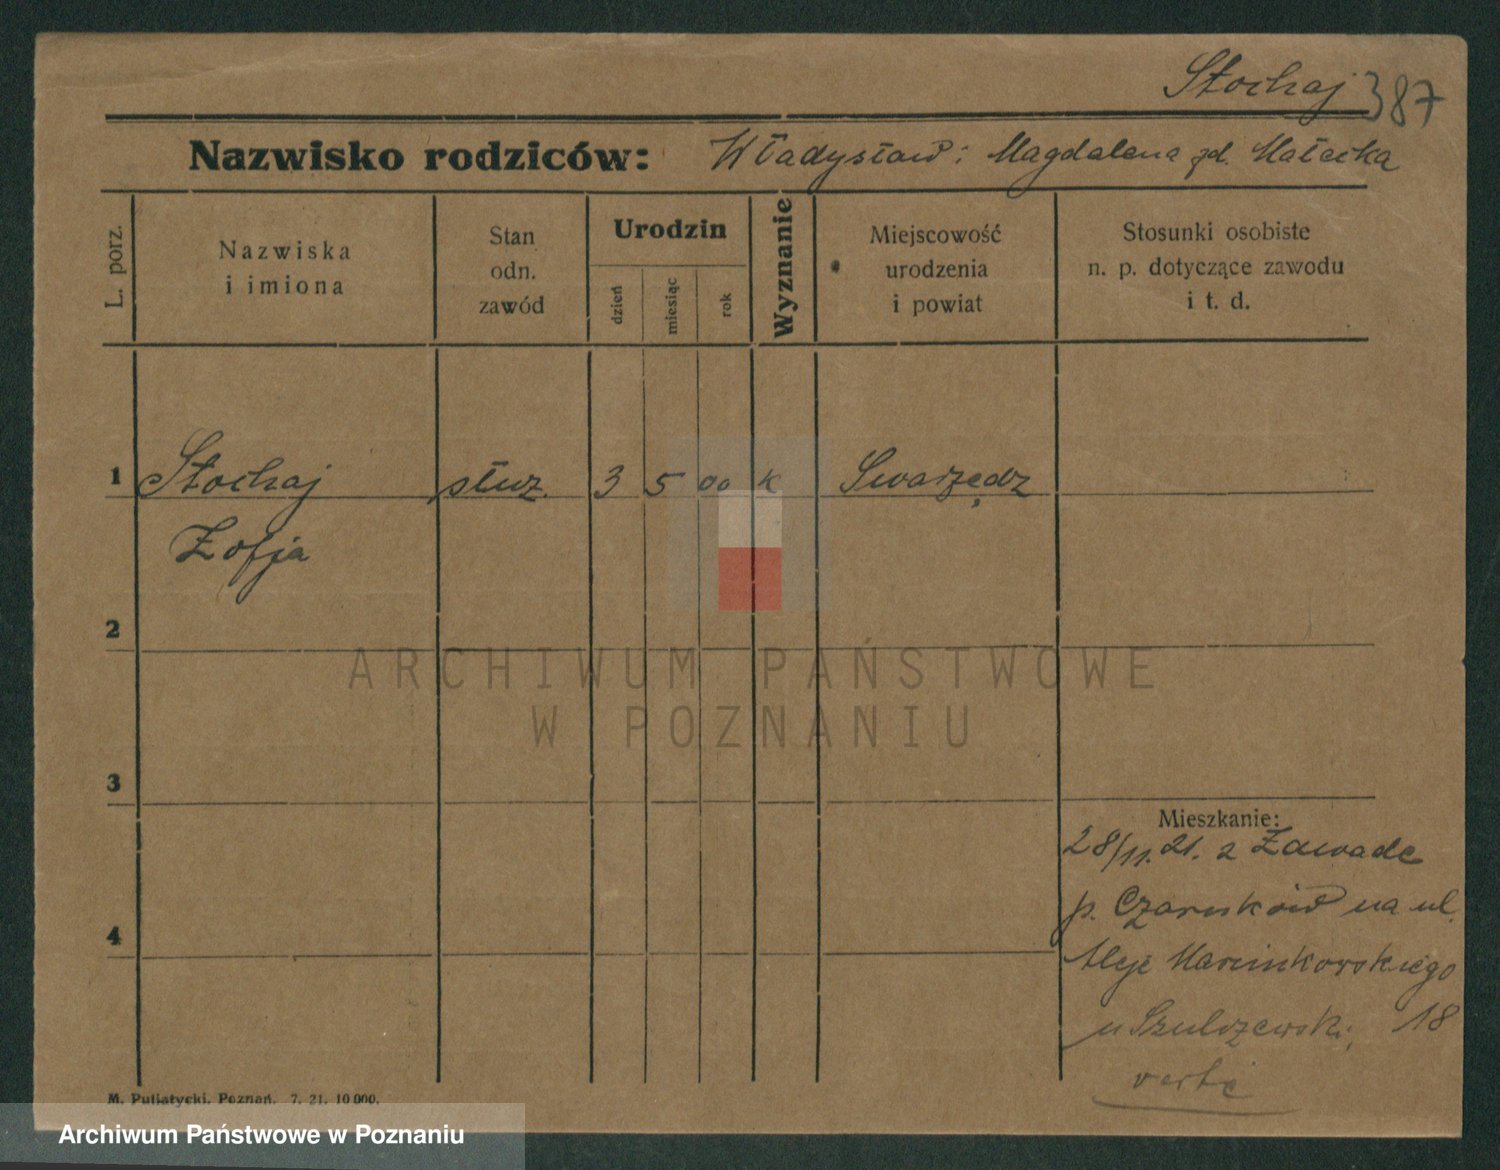 Stochaj 387
Nazwisko rodziców: Władysław i Magdalena zd. Małecka
L. porz.
Nazwiska
i imiona
Stan
odn.
zawód
Urodzin
dzień
miesiąc
rok
Wyznanie
Miejscowość
urodzenia
i powiat
Stosunki osobiste
n. p. dotyczące zawodu
i t. d.
1 Stochaj służ. 3 5 00 k Swarzędz
Zofja
2
ARCHIWUM PAŃSTWOWE
W POZNANIU
3
Mieszkanie:
28/11. 21. z Zawade
p. Czarnków na ul.
4
Aleje Marcinkowskiego
u Szulczewski, 18
verte
M. Putiatycki, Poznań. 7. 21. 10 000.
Archiwum Państwowe w Poznaniu